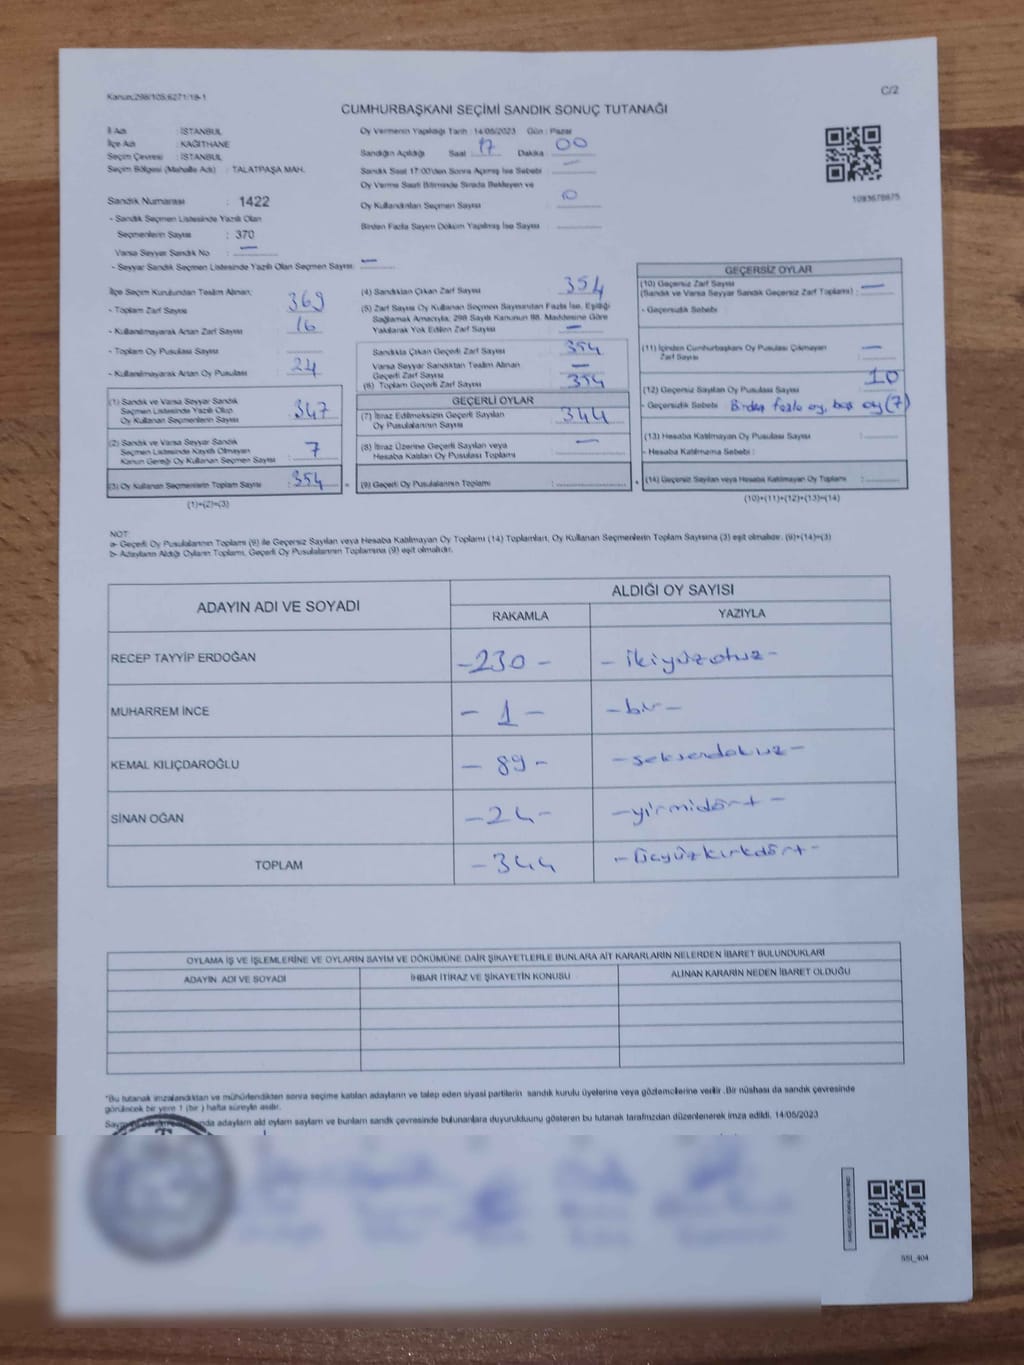 Kanun:298/105,6271/19-1
C/2
CUMHURBAŞKANI SEÇİMİ SANDIK SONUÇ TUTANAĞI
İl Adı : İSTANBUL
İlçe Adı : KAĞITHANE
Seçim Çevresi : İSTANBUL
Seçim Bölgesi (Mahalle Adı) : TALATPAŞA MAH.
Sandık Numarası : 1422
- Sandık Seçmen Listesinde Yazılı Olan
Seçmenlerin Sayısı : 370
Varsa Seyyar Sandık No : —
- Seyyar Sandık Seçmen Listesinde Yazılı Olan Seçmen Sayısı: —
Oy Vermenin Yapıldığı Tarih : 14/05/2023 Gün : Pazar
Sandığın Açıldığı Saat : 17 Dakika : 00
Sandık Saat 17:00'den Sonra Açılmış İse Sebebi : —
Oy Verme Saati Bitiminde Sırada Bekleyen ve
Oy Kullandırılan Seçmen Sayısı : 0
Birden Fazla Sayım Döküm Yapılmış İse Sayısı :
1093678675
İlçe Seçim Kurulundan Teslim Alınan;
- Toplam Zarf Sayısı : 369
- Kullanılmayarak Artan Zarf Sayısı : 16
- Toplam Oy Pusulası Sayısı :
- Kullanılmayarak Artan Oy Pusulası : 24
(1) Sandık ve Varsa Seyyar Sandık
Seçmen Listesinde Yazılı Olup
Oy Kullanan Seçmenlerin Sayısı : 347
(2) Sandık ve Varsa Seyyar Sandık
Seçmen Listesinde Kayıtlı Olmayan
Kanun Gereği Oy Kullanan Seçmen Sayısı : 7
(3) Oy Kullanan Seçmenlerin Toplam Sayısı : 354
(1)+(2)=(3)
(4) Sandıktan Çıkan Zarf Sayısı : 354
(5) Zarf Sayısı Oy Kullanan Seçmen Sayısından Fazla İse, Eşitliği
Sağlamak Amacıyla, 298 Sayılı Kanunun 98. Maddesine Göre
Yakılarak Yok Edilen Zarf Sayısı : —
Sandıkta Çıkan Geçerli Zarf Sayısı : 354
Varsa Seyyar Sandıktan Teslim Alınan
Geçerli Zarf Sayısı : —
(6) Toplam Geçerli Zarf Sayısı : 354
GEÇERLİ OYLAR
(7) İtiraz Edilmeksizin Geçerli Sayılan
Oy Pusulalarının Sayısı : 344
(8) İtiraz Üzerine Geçerli Sayılan veya
Hesaba Katılan Oy Pusulası Toplamı : —
(9) Geçerli Oy Pusulalarının Toplamı :
GEÇERSİZ OYLAR
(10) Geçersiz Zarf Sayısı
(Sandık ve Varsa Seyyar Sandık Geçersiz Zarf Toplamı) : —
- Geçersizlik Sebebi :
(11) İçinden Cumhurbaşkanı Oy Pusulası Çıkmayan
Zarf Sayısı : —
(12) Geçersiz Sayılan Oy Pusulası Sayısı : 10
- Geçersizlik Sebebi : Birden fazla oy, boş oy (7)
(13) Hesaba Katılmayan Oy Pusulası Sayısı :
- Hesaba Katılmama Sebebi :
(14) Geçersiz Sayılan veya Hesaba Katılmayan Oy Toplamı :
(10)+(11)+(12)+(13)=(14)
NOT:
a- Geçerli Oy Pusulalarının Toplamı (9) ile Geçersiz Sayılan veya Hesaba Katılmayan Oy Toplamı (14) Toplamları, Oy Kullanan Seçmenlerin Toplam Sayısına (3) eşit olmalıdır. (9)+(14)=(3)
b- Adayların Aldığı Oyların Toplamı, Geçerli Oy Pusulalarının Toplamına (9) eşit olmalıdır.
ADAYIN ADI VE SOYADI
ALDIĞI OY SAYISI
RAKAMLA YAZIYLA
RECEP TAYYİP ERDOĞAN -230- -ikiyüzotuz-
MUHARREM İNCE -1- -bir-
KEMAL KILIÇDAROĞLU -89- -seksendokuz-
SİNAN OĞAN -24- -yirmidört-
TOPLAM -344- -üçyüzkırkdört-
OYLAMA İŞ VE İŞLEMLERİNE VE OYLARIN SAYIM VE DÖKÜMÜNE DAİR ŞİKAYETLERLE BUNLARA AİT KARARLARIN NELERDEN İBARET BULUNDUKLARI
ADAYIN ADI VE SOYADI İHBAR İTİRAZ VE ŞİKAYETİN KONUSU ALINAN KARARIN NEDEN İBARET OLDUĞU
*Bu tutanak imzalandıktan ve mühürlendikten sonra seçime katılan adayların ve talep eden siyasi partilerin sandık kurulu üyelerine veya gözlemcilerine verilir. Bir nüshası da sandık çevresinde
görülecek bir yere 1 (bir) hafta süreyle asılır.
adayların aldı oyların sayların ve bunların sandık çevresinde bulunanlara duyurulduunu gösteren bu tutanak tarafımızdan düzenlenerek imza edildi. 14/05/2023
SSİ_404